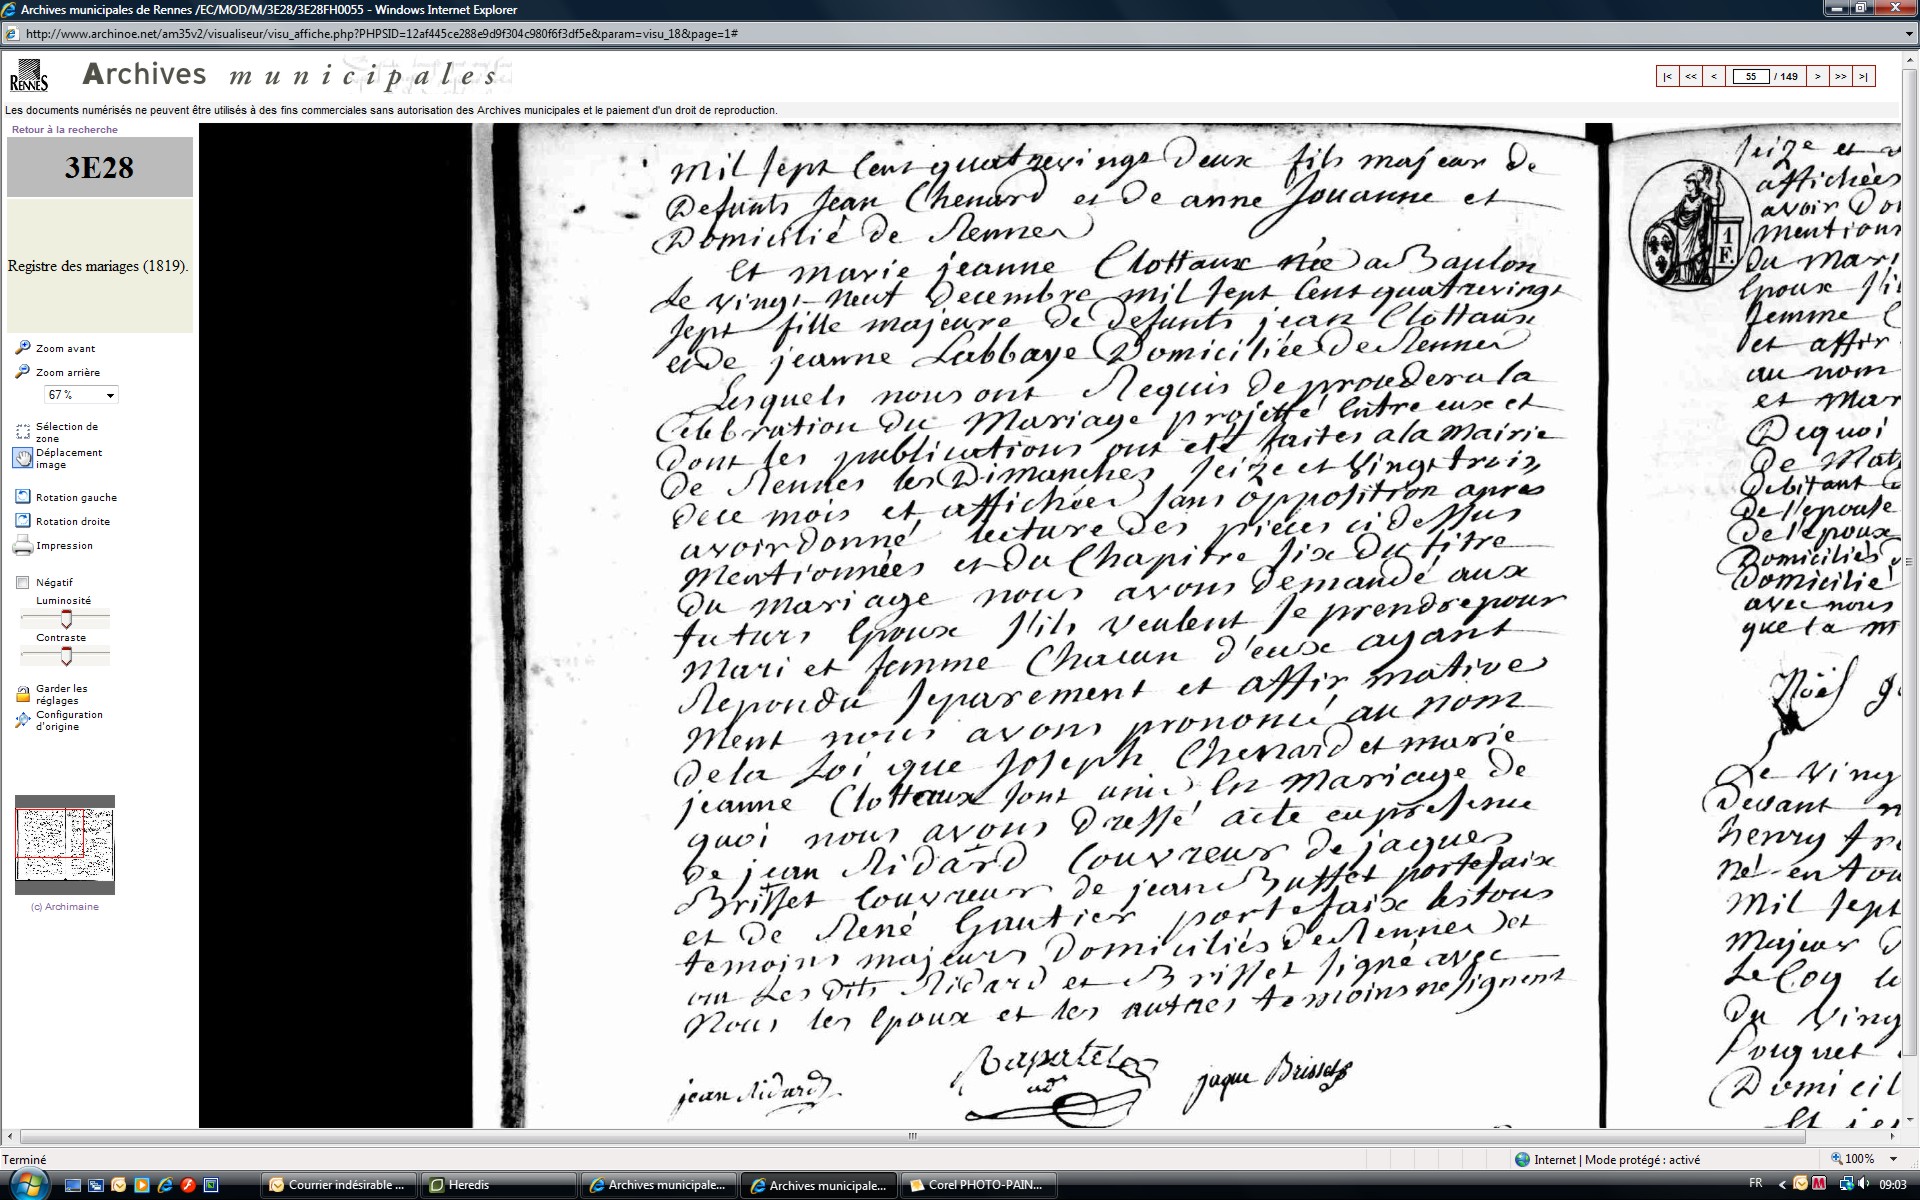 Archives municipales de Rennes /EC/MOD/M/3E28/3E28FH0055 - Windows Internet Explorer
http://www.archinoe.net/am35v2/visualiseur/visu_affiche.php?PHPSID=12af445ce288e9d9f304c980f6f3df5e&param=visu_18&page=1#
RENNES
Archives municipales
|< << < 55 / 149 > >> >|
Les documents numérisés ne peuvent être utilisés à des fins commerciales sans autorisation des Archives municipales et le paiement d'un droit de reproduction.
Retour à la recherche
3E28
Registre des mariages (1819).
Zoom avant
Zoom arrière
67 %
Sélection de
zone
Déplacement
image
Rotation gauche
Rotation droite
Impression
Négatif
Luminosité
Contraste
Garder les
réglages
Configuration
d'origine
(c) Archimaine
mil sept cent quatrevingt deux fils majeur de
Defunts Jean Chenard et de anne Jouanne et
Domicilié de Rennes
Et marie jeanne Clottaux née a Baulon
le vingt neuf Decembre mil sept cent quatrevingt
sept fille majeure de defunts jean Clottaux
et de jeanne Labbaye Domiciliée de Rennes
Lesquels nous ont Requis de proceder a la
Celebration du Mariage projetté entre eux et
dont les publications ont été faites a la Mairie
de Rennes les Dimanches seize et vingt trois
de ce mois et affichées sans opposition apres
avoir donné lecture des pieces ci dessus
Mentionnées et du Chapitre six du titre
du mariage nous avons demandé aux
futurs Epoux s'ils veulent se prendre pour
Mari et femme Chacun d'eux ayant
Repondu separement et affirmative
ment nous avons prononcé au nom
de la Loi que Joseph Chenard et marie
jeanne Clottaux sont unis en Mariage de
quoi nous avons Dressé acte en presence
de jean Ridard Couvreur de jaques
Brisset Couvreur de jean Buffet portefaix
et de René Gautier portefaix les tous
temoins majeurs Domiciliés de Rennes et
ont Les dits Ridard et Brisset signé avec
Nous les epoux et les autres temoins ne signent
jean Ridard
Rapatel
adt
jaque Brisset
1
F.
seize et v
affichées
avoir Do
mention
du Mari
Epoux s'il
femme C
et affir
au nom
et Mar
De quoi
de Mat
Debitant
de l'epouse
de l'epoux
Domiciliés
Domicilié
avec nous
que la m
Noël
Le Ving
Devant n
henry fr
né en
Mil sept
Majeur D
Le Coq
Du Ving
Pouquet
Domicil
Et je
Terminé
Internet | Mode protégé : activé
100%
Courrier indésirable ...
Heredis
Archives municipale...
Archives municipale...
Corel PHOTO-PAIN...
FR
09:03